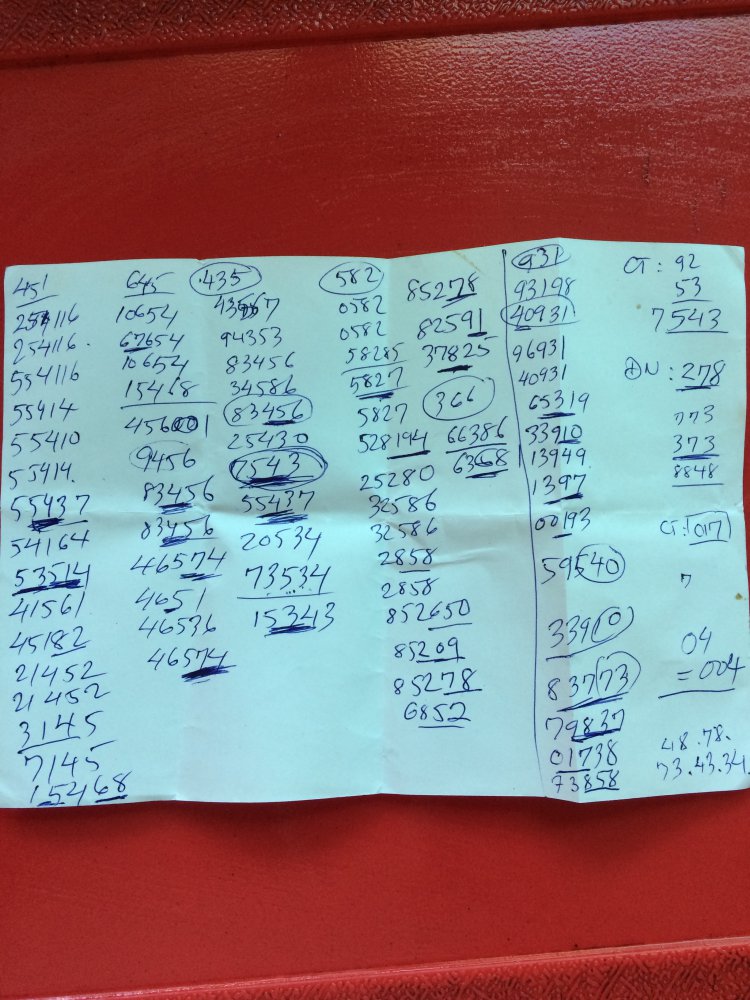 451
254116
254116.
554116
55914
55410
55914.
55437
54164
53514
41561
45182
21452
21452
3145
7145
15468
645
10654
67654
10654
15468
456001
9456
83456
83456
46574
4651
46536
46574
435
43567
94353
83456
34586
83456
25430
7543
55437
20534
73534
15343
582
0582
0582
58285
5827
5827
528194
25280
32586
32586
2858
2858
852650
85209
85278
6852
85278
82591
37825
366
66386
63668
931
93198
40931
96931
40931
65319
33910
13949
1397
00193
59540
33910
83773
79837
01738
73858
CT: 92
53
7543
ĐN: 278
773
373
8848
CT: 017
7
04
=004
48.78.
73.43.34.